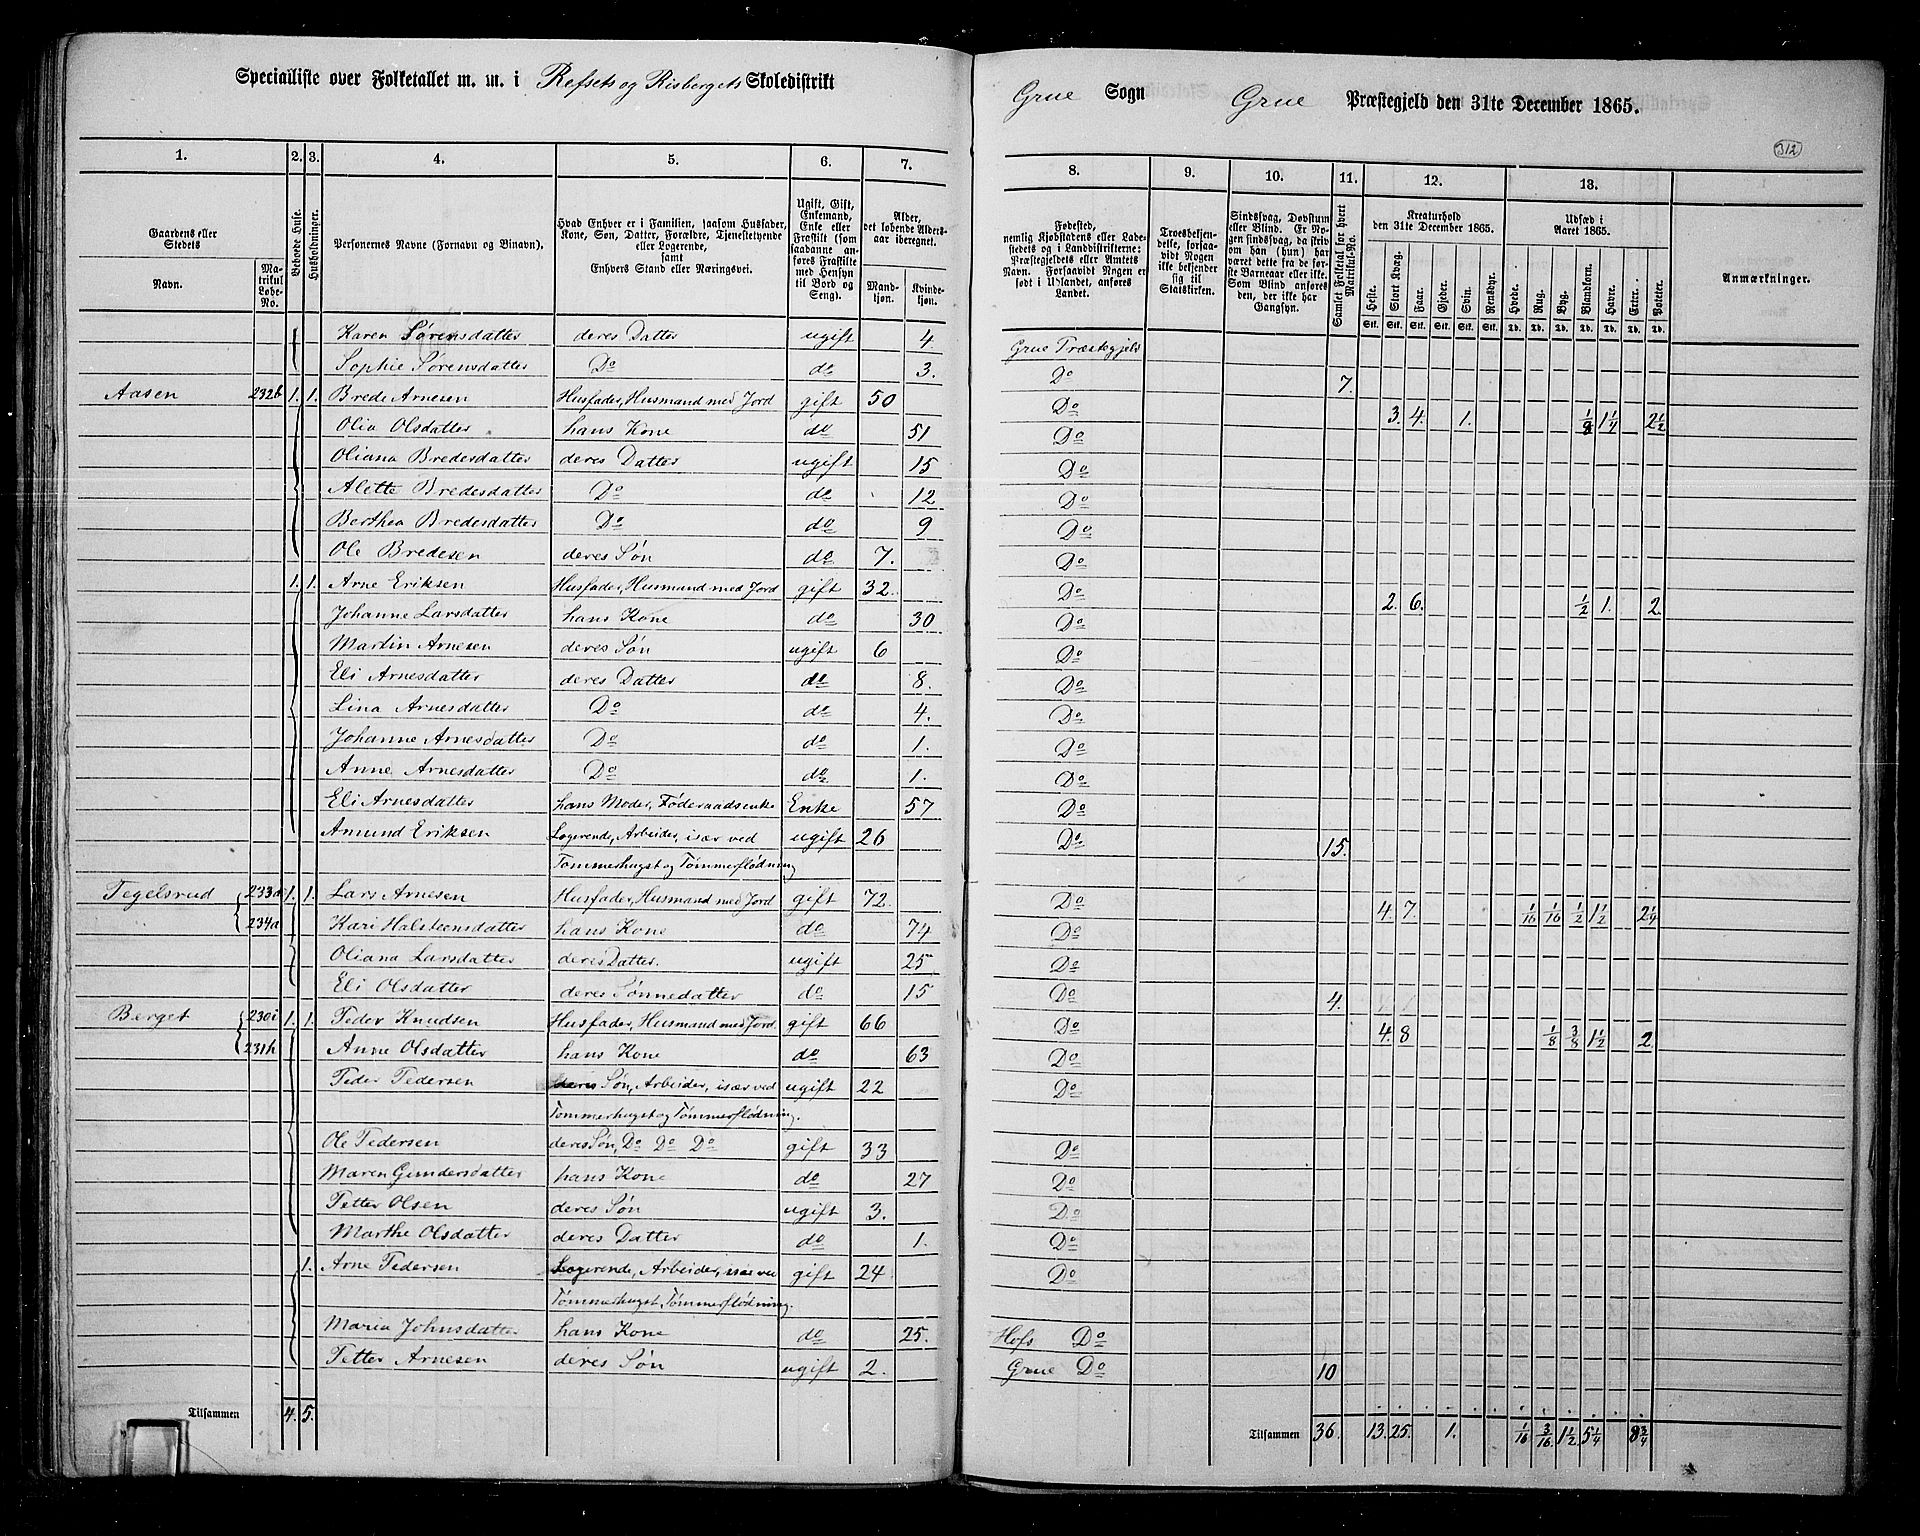 Specialliste over Folketallet m. m. i Refsets og Risbergets Skoledistrikt
Grue Sogn Grue Præstegjeld den 31te December 1865.
312
1. 2. 3. 4. 5. 6. 7. 8. 9. 10. 11. 12. 13.
Gaardens eller Stedets
Navn.
Matrikul Løbe-No.
Beboede Huse.
Husholdninger.
Personernes Navne (Fornavn og Binavn).
Hvad Enhver er i Familien, saasom Husfader, Kone, Søn, Datter, Forældre, Tjenestetyende eller Logerende, samt Enhvers Stand eller Næringsvei.
Ugift, Gift, Enkemand, Enke eller Fraskilt (som saadanne anføres Fraskilte med Hensyn til Bord og Seng).
Alder, det løbende Aldersaar iberegnet.
Mandkjøn. Kvindekjøn.
Fødested, nemlig Kjøbstadens eller Ladestedets eller i Landdistrikterne: Præstegjeldets eller Amtets Navn. Forsaavidt Nogen er født i Udlandet, anføres Landet.
Troesbekjendelse, forsaavidt Nogen ikke bekjender sig til Statskirken.
Sindssvag, Døvstum eller Blind. Er Nogen sindssvag, da skriv om han (hun) har været dette fra de første Barneaar eller ikke. Som Blind anføres den, der ikke har Gangsyn.
Samlet Folketal for hvert Matrikul-No.
Kreaturhold den 31te December 1865.
Heste. Stort Kvæg. Faar. Gjeder. Svin. Rensdyr.
Stk. Stk. Stk. Stk. Stk. Stk.
Udsæd i Aaret 1865.
Hvede. Rug. Byg. Blandkorn. Havre. Erter. Poteter.
Td. Td. Td. Td. Td. Td. Td.
Anmærkninger.
Karen Sørensdatter deres Datter ugift 4. Grue Præstegjeld
Sophie Sørensdatter Do do 3. Do 7.
Aasen 232b 1. 1. Brede Arnesen Husfader, Husmand med Jord gift 50 Do 3. 4. 1. 1/8 1 1/4 2 1/2
Olia Olsdatter hans Kone do 51 Do
Oliana Bredesdatter deres Datter ugift 15 Do
Alette Bredesdatter Do do 12 Do
Berthea Bredesdatter Do do 9 Do
Ole Bredesen deres Søn do 7. Do
1. 1. Arne Eriksen Husfader, Husmand med Jord gift 32. Do 2. 6. 1/2 1. 2.
Johanne Larsdatter hans Kone do 30 Do
Martin Arnesen deres Søn ugift 6 Do
Eli Arnesdatter deres Datter do 8. Do
Lina Arnesdatter Do do 4. Do
Johanne Arnesdatter Do do 1. Do
Anne Arnesdatter Do do 1. Do
Eli Arnesdatter hans Moder, Føderaadsenke Enke 57 Do
Amund Eriksen Logerende, Arbeider, især ved ugift 26 Do 15.
Tømmerhugst og Tømmerflødning
Tegelsrud 233a 1. 1. Lars Arnesen Husfader, Husmand med Jord gift 72. Do 4. 7. 1/16 1/16 1/2 1 1/2 2 1/4
234a Kari Halsteensdatter hans Kone do 74 Do
Oliana Larsdatter deres Datter. ugift 25 Do
Eli Olsdatter deres Sønnedatter do 15 Do 4.
Berget 230i 1. 1. Peder Knudsen Husfader, Husmand med Jord. gift 66 Do 4. 8 1/8 3/8 1 1/2 2
231h Anne Olsdatter hans Kone do 63 Do
Peder Pedersen deres Søn, Arbeider, især ved ugift 22 Do
Tømmerhugst og Tømmerflødning.
Ole Pedersen deres Søn, Do Do Do gift 33 Do
Maren Gundersdatter hans Kone do 27 Do
Petter Olsen deres Søn ugift 3. Do
Marthe Olsdatter deres Datter do 1. Do
1. Arne Pedersen Logerende, Arbeider, især ved gift 24 Do
Tømmerhugst, Tømmerflødning.
Maria Johnsdatter hans Kone do 25. Hofs Do
Petter Arnesen deres Søn ugift 2. Grue Do 10
Tilsammen 4. 5. Tilsammen 36. 13. 25. 1. 1/16 3/16 1 1/2 5 1/4 8 3/4